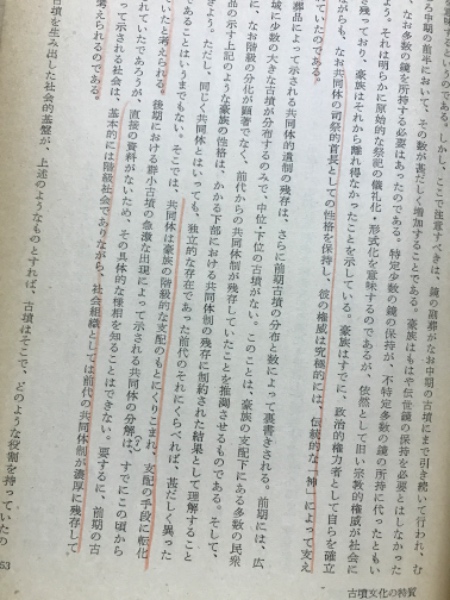 味するというのである。しかし、ここで注意すべきは、鏡の副葬がなお中期の古墳にまで引き続いて行われ、む
ろ中期の前半において、その数が甚だしく増加することである。豪族はもはや伝世鏡の保持を必要とはしなかった
、なお多数の鏡を所持する必要はあったのである。特定少数の鏡の保持が、不特定多数の鏡の所持に代ったともい
よう。それは明らかに原始的な祭祀の儀礼化・形式化を意味するのであるが、依然として旧い宗教的権威が社会に
残っており、豪族はそれから離れ得なかったことを示している。豪族はすでに、政治的権力者として自らを確立
ながらも、なお共同体の司祭的首長としての性格を保持し、彼の権威は究極的には、伝統的な「神」によって支え
ていたのである。
葬品によって示される共同体的遺制の残存は、さらに前期古墳の分布と数によって裏書きされる。前期には、広
域に少数の大きな古墳が分布するのみで、中位・下位の古墳がない。このことは、豪族の支配下にある多数の民衆
に、なお階級の分化が顕著でなく、前代からの共同体制が残存していたことを推測させるものである。そして、
品の示す上記のような豪族の性格は、かかる下部における共同体制の残存に制約された結果として理解すること
きよう。ただし、同じく共同体とはいっても、独立的な存在であった前代のそれにくらべれば、甚だしく異った
であることはいうまでもない。そこでは、共同体は豪族の階級的な支配のもとにくりこまれ、支配の手段に転化
ていたと考えられる。後期における群小古墳の急激な出現によって示される共同体の分解は、すでにこの頃から
(?)
されていたであろうが、直接の資料がないため、その具体的な様相を知ることはできない。要するに、前期の古
って示される社会は、基本的には階級社会でありながら、社会組織としては前代の共同体制が濃厚に残存して
考えられるのである
古墳を生み出した社会的基盤が、上述のようなものとすれば、古墳はそこで、どのような役割を持っていたの
古墳文化の特質
63